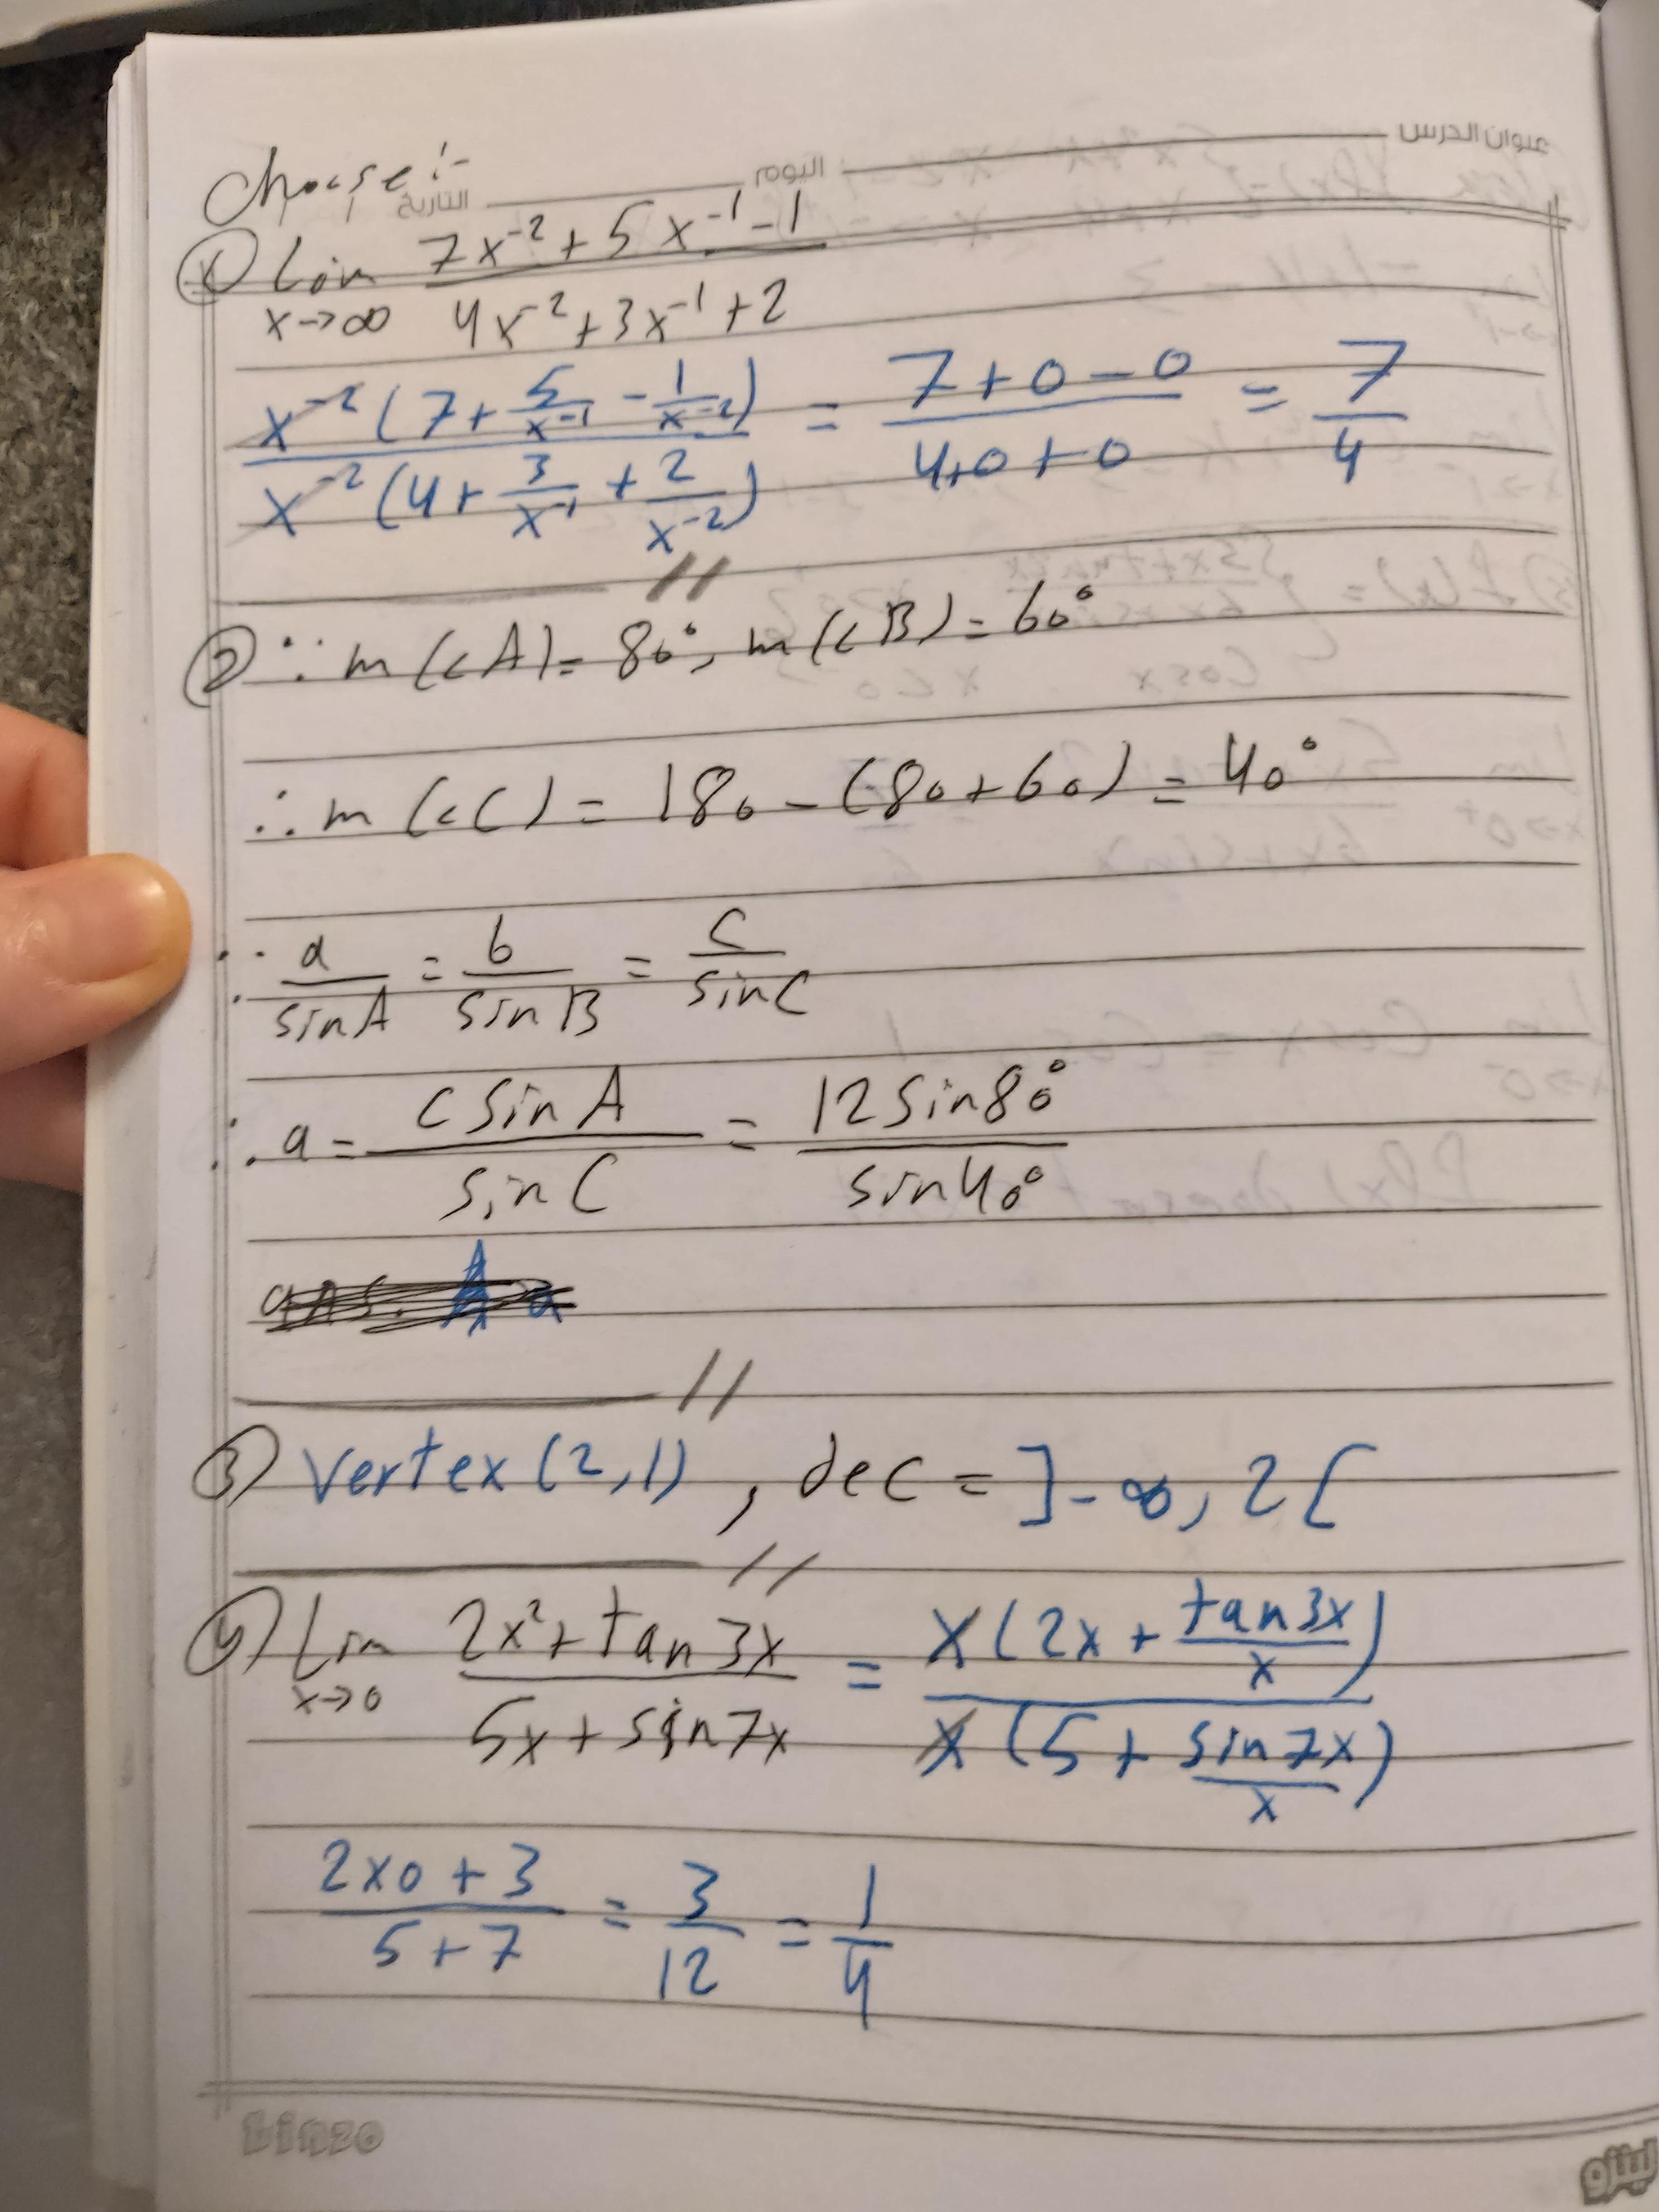 عنوان الدرس
اليوم
التاريخ
Choose:-
① Lim x→∞ (7x⁻² + 5x⁻¹ - 1) / (4x⁻² + 3x⁻¹ + 2)
x⁻²(7 + 5/x⁻¹ - 1/x⁻²) / x⁻²(4 + 3/x⁻¹ + 2/x⁻²) = (7+0-0) / (4+0+0) = 7/4
② ∵ m(<A) = 80°, m(<B) = 60°
∴ m(<C) = 180 - (80+60) = 40°
∵ a/sinA = b/sinB = c/sinC
∴ a = c sinA / sinC = 12 sin80° / sin40°
③ Vertex (2,1), dec = ]-∞, 2[
④ Lim x→0 (2x² + tan3x) / (5x + sin7x) = x(2x + tan3x/x) / x(5 + sin7x/x)
(2×0+3) / (5+7) = 3/12 = 1/4
Linzo
لينزو